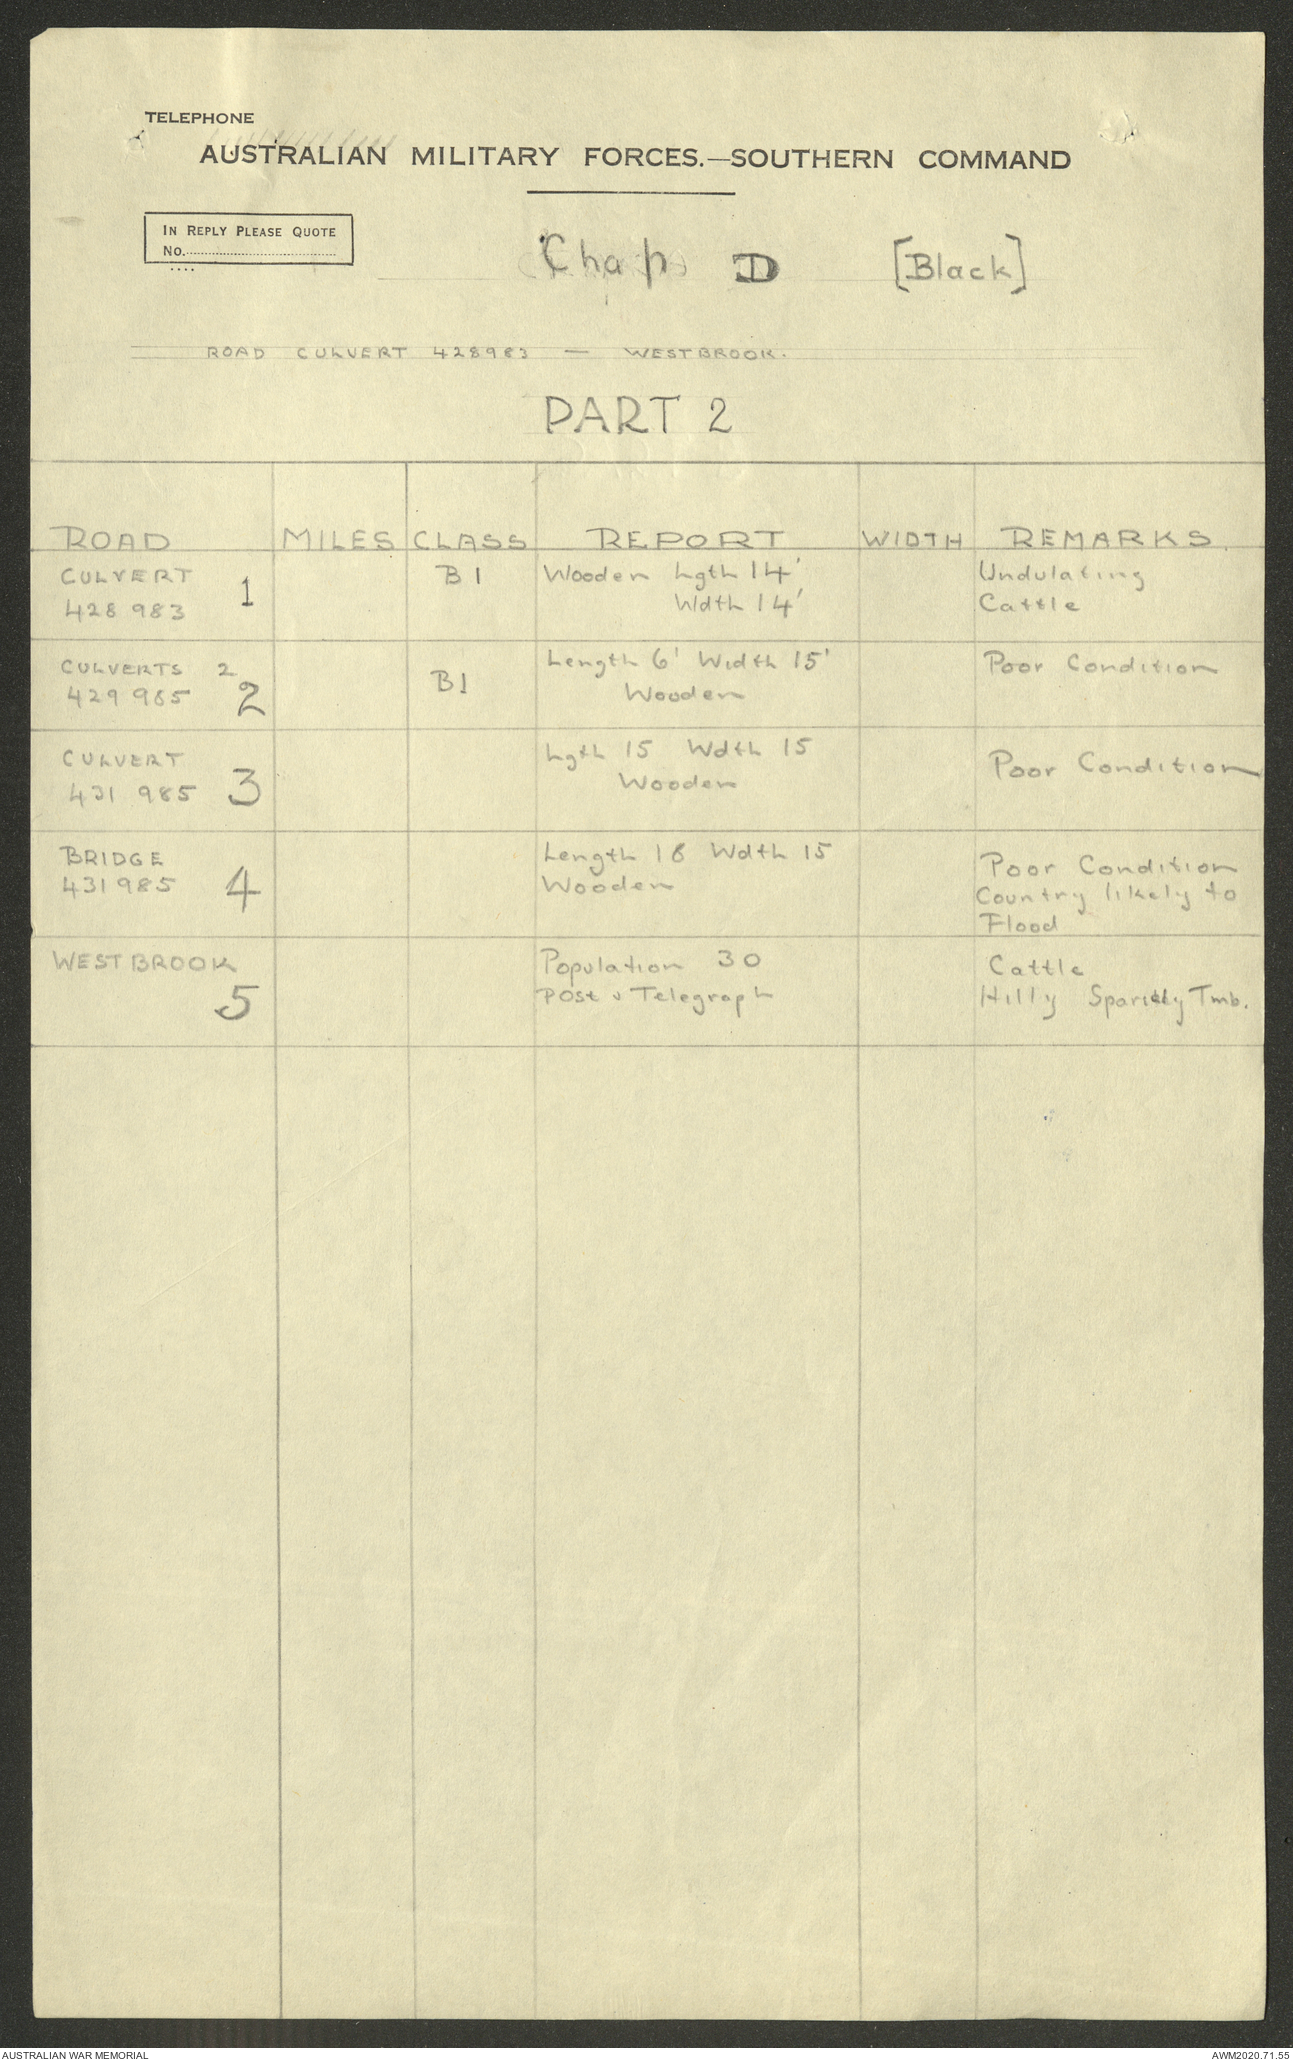 TELEPHONE
AUSTRALIAN MILITARY FORCES.—SOUTHERN COMMAND
IN REPLY PLEASE QUOTE
No.
Chap D [Black]
ROAD CULVERT 428983 — WESTBROOK.
PART 2
ROAD MILES CLASS REPORT WIDTH REMARKS
CULVERT 1 B1 Wooden Lgth 14' Undulating
428 983 Wdth 14' Cattle
CULVERTS 2 Length 6' Width 15' Poor Condition
429 985 2 B1 Wooden
CULVERT Lgth 15 Wdth 15 Poor Condition
431 985 3 Wooden
BRIDGE Length 18 Wdth 15 Poor Condition
431985 4 Wooden Country likely to
Flood
WESTBROOK Population 30 Cattle
5 Post & Telegraph Hilly Tmb.
AUSTRALIAN WAR MEMORIAL AWM2020.71.55